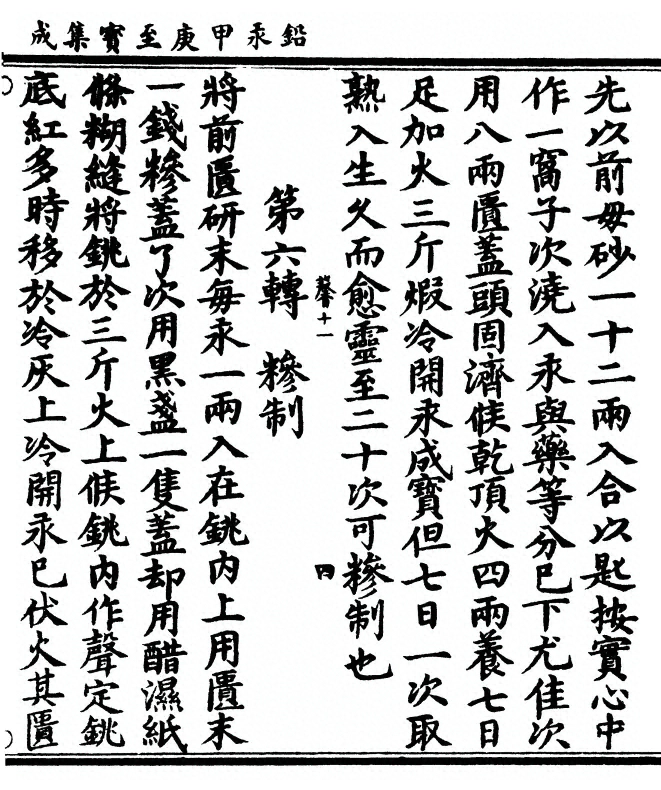 鉛汞甲庚至寶集成
先以前母砂一十二兩入合以匙按實心中
作一窩子次澆入汞與藥等分已下尤佳次
用八兩匱蓋頭固濟候乾頂火四兩養七日
足加火三斤煆冷開汞成寶但七日一次取
熟入生久而愈靈至二十次可糝制也
馨十一
四
第六轉 糝制
將前匱研末每汞一兩入在銚內上用匱末
一錢糝蓋了次用黑盞一隻蓋却用醋濕紙
條糊縫將銚於三斤火上候銚內作聲定銚
底紅多時移於冷灰上冷開汞已伏火其匱